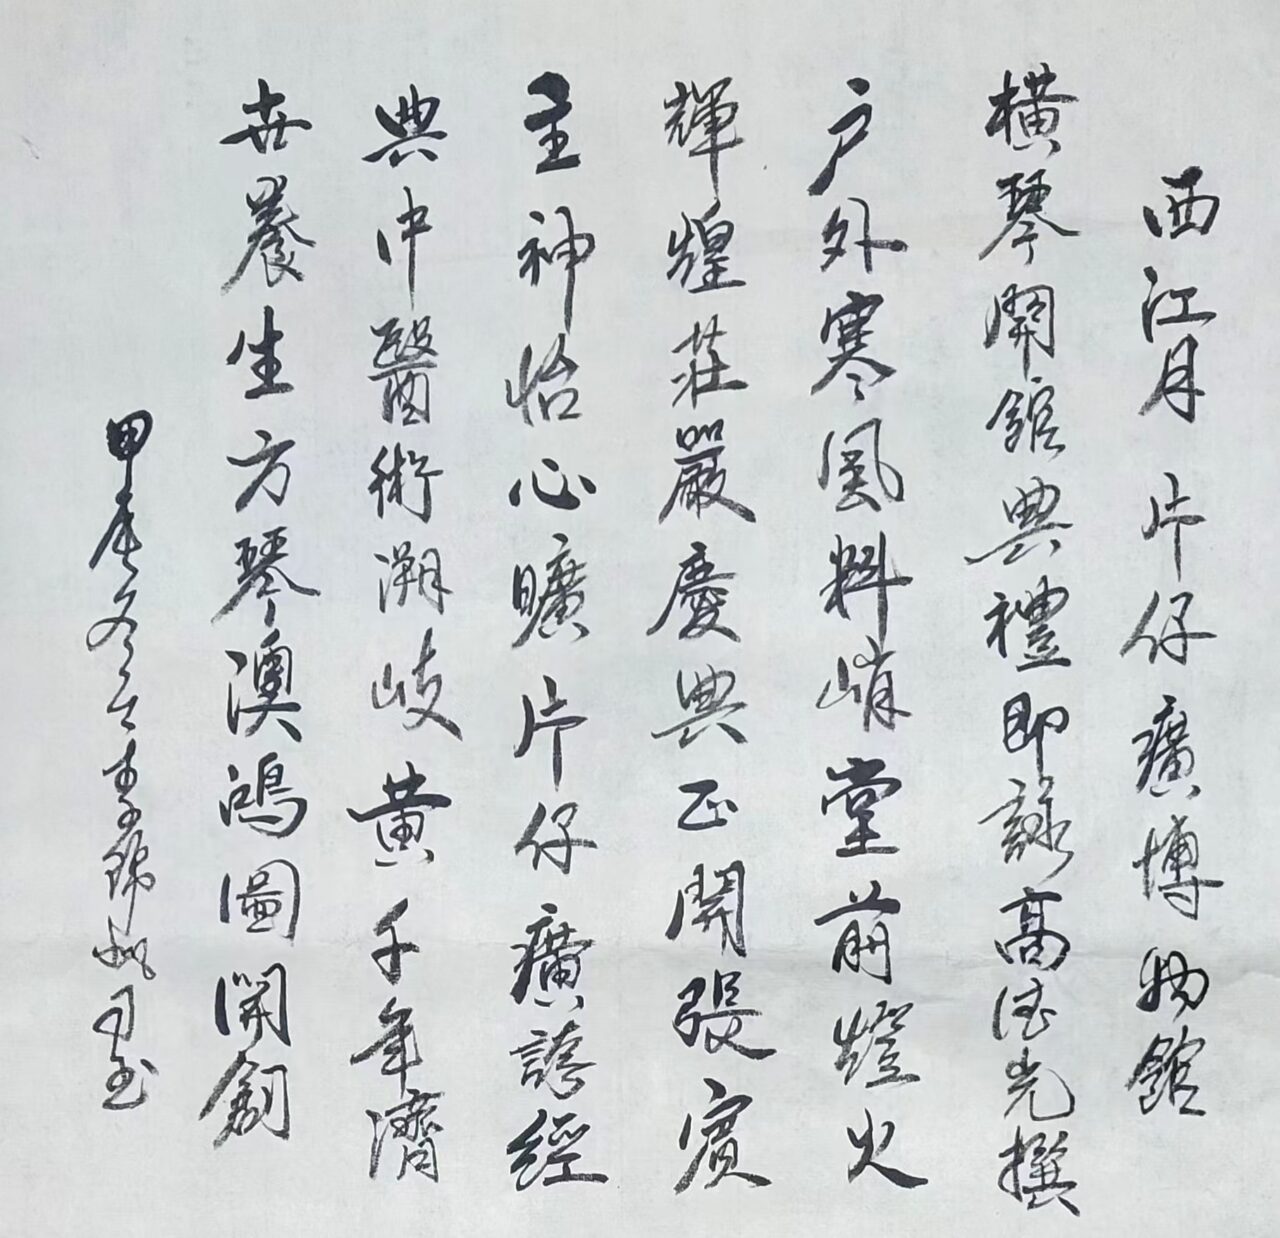 西江月 片仔癀博物館
橫琴開館典禮即詠高德光撰
户外寒風料峭堂前燈火
輝煌莊嚴慶典正開張賓
主神怡心曠片仔癀誇經
典中醫術溯岐黄千年濟
世養生方琴澳鴻圖開創
甲辰冬李錦